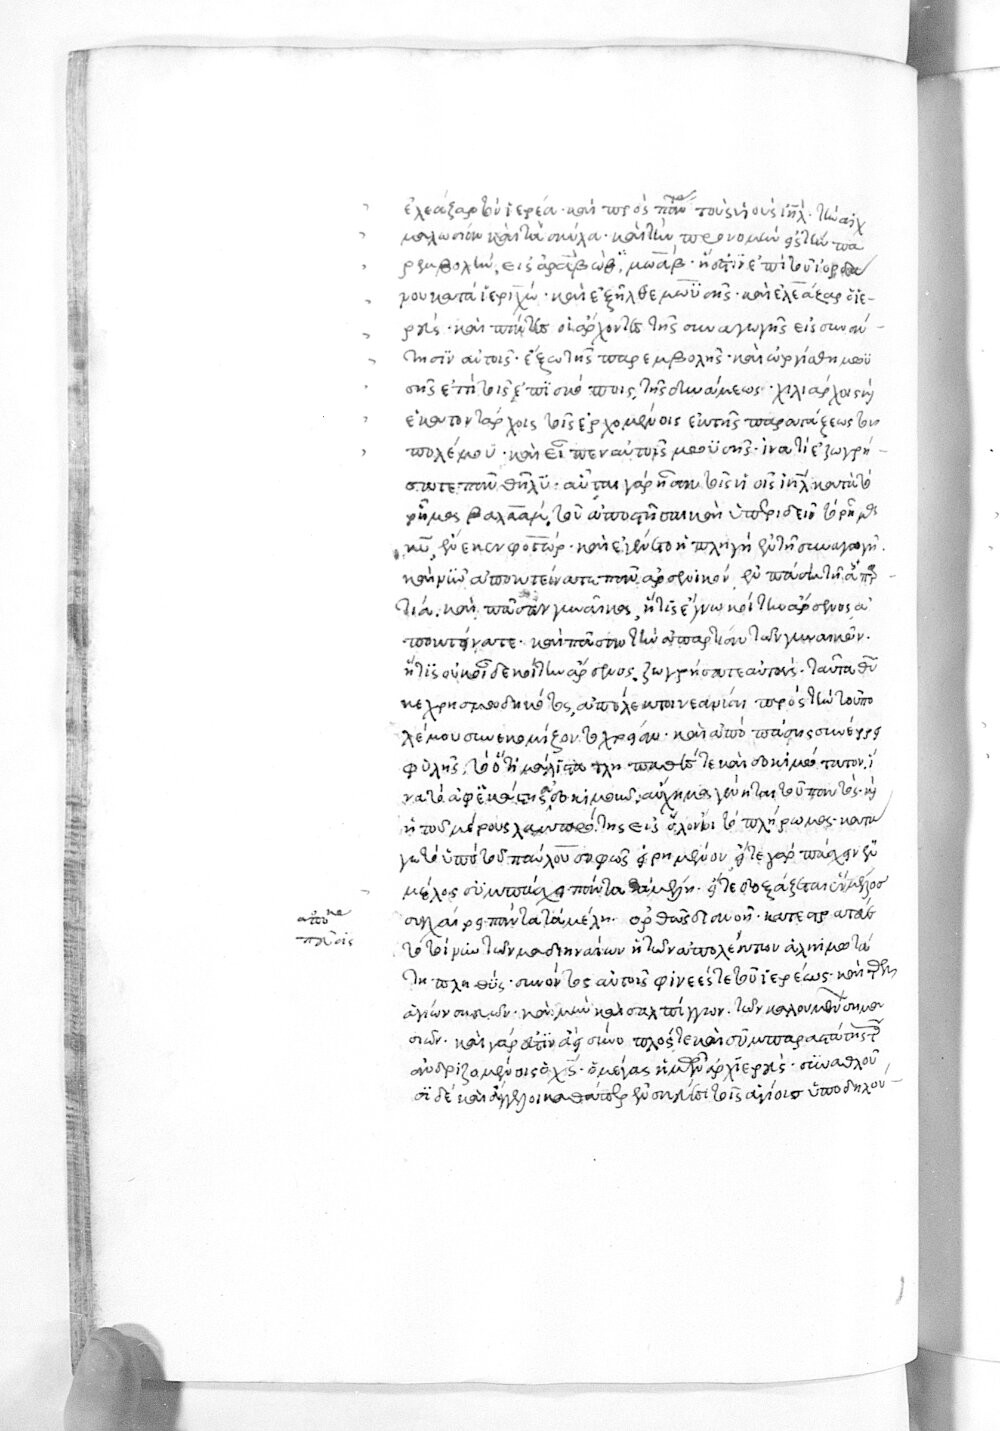 ἐλεάζαρ τὸν ἱερέα· καὶ πρὸς πάντας τοὺς υἱοὺς ἰηλ· τὴν αἰχ
μαλωσίαν καὶ τὰ σκῦλα· καὶ τὴν προνομὴν εἰς τὴν πα
ρεμβολὴν, εἰς ἀραβὼθ μωάβ· ἥ ἐστιν ἐπὶ τοῦ ἰορδά
νου κατὰ ἱεριχώ· καὶ ἐξῆλθε μωϋσῆς· καὶ ἐλεάζαρ ὁ ἱε-
ρεὺς· καὶ πάντες οἱ ἄρχοντες τῆς συναγωγῆς εἰς συνάν-
τησιν αὐτοῖς· ἔξω τῆς παρεμβολῆς· καὶ ὠργίσθη μωϋ
σῆς ἐπὶ τοῖς ἐπισκόποις τῆς δυνάμεως· χιλιάρχοις καὶ
ἑκατοντάρχοις τοῖς ἐρχομένοις ἐκ τῆς παρατάξεως τοῦ
πολέμου· καὶ εἶπεν αὐτοῖς μωϋσῆς· ἱνατί ἐζωγρή-
σατε πᾶν θῆλυ· αὗται γὰρ ἦσαν τοῖς υἱοῖς ἰηλ κατὰ τὸ
ῥῆμα βαλαὰμ, τοῦ ἀποστῆσαι καὶ ὑπεριδεῖν τὸ ῥῆμα
κυ, ἕνεκεν φογώρ· καὶ ἐγένετο ἡ πληγὴ ἐν τῇ συναγωγῇ·
καὶ νῦν ἀποκτείνατε πᾶν ἀρσενικὸν ἐν πάσῃ τῇ ἀπαρ-
τίᾳ· καὶ πᾶσαν γυναῖκα, ἥτις ἔγνω κοίτην ἄρσενος ἀ
ποκτείνατε· καὶ πᾶσαν τὴν ἀπαρτίαν τῶν γυναικῶν·
ἥτις οὐκ οἶδε κοίτην ἄρσενος, ζωγρήσατε αὐτάς· ταῦτα θυ
κεχρησμωδηκότος, ἀπόλεκτοι νεανίαι πρὸς τὴν τοῦ πο
λέμου συνεκομίζοντο χρείαν· καὶ ἀπὸ πάσης συνέρρει
φυλῆς, τὸ ὅτι μάλιστα τε καὶ δοκιμώτατον, ἵ
να τὸ ἀφ' ἑκάστης δοκίμιον, αὔχημα γένηται τοῦ παντός· καὶ
ἡ τοῦ μέρους λαμπρότης εἰς ὅλον τὸ πλήρωμα· κατὰ
γε τὸ ὑπὸ τοῦ παύλου σαφῶς εἰρημένον, εἴτε γὰρ πάσχει ἓν
μέλος συμπάσχει πάντα τὰ μέλη· εἴτε δοξάζεται ἓν μέλος
συγχαίρει πάντα τὰ μέλη· ὀρθῶς
τῶν μαδιηναίων ἡ τῶν ἀπολέκτων ἀλκιμωτά
τη πληθὺς· συνόντος αὐτοῖς φινεές τε τοῦ ἱερέως· καὶ τῶν
ἁγίων σκευῶν· καὶ μὴν καὶ σαλπίγγων· τῶν καλουμένων σημα
σιῶν· καὶ γάρ ἐστιν ἀεὶ σύνοπλός τε καὶ συμπαραστάτης τοῖς
ἀνδριζομένοις ὁ χς· ὁ μέγας ἡμῶν ἀρχιερεύς· συναθλοῦ
σι δὲ καὶ ἄγγελοι καθάπερ ἐν σκεύεσι τοῖς ἁγίοις ὑποδηλού-